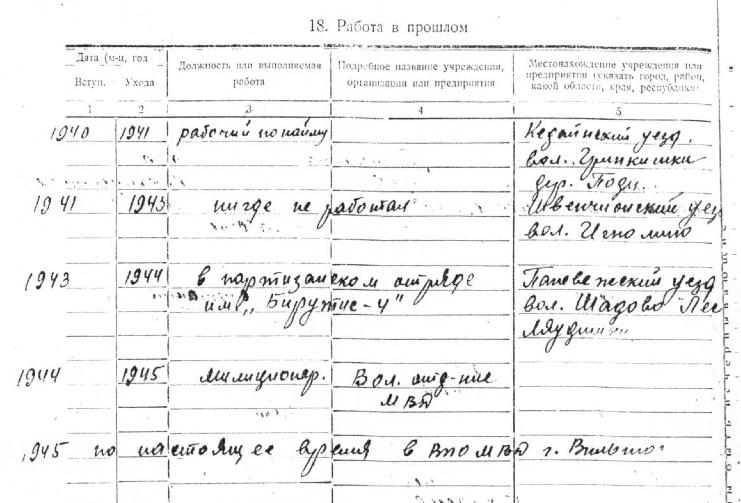 18. Работа в прошлом
Дата (м-ц, год
Вступ. Ухода
Должность или выполняемая
работа
Подробное название учреждения,
организации или предприятия
Местонахождение учреждения или
предприятия (указать город, район,
какой области, края, республики
1 2 3 4 5
1940 1941 рабочий по найму Кедайнский уезд.
вол. Гринкишки
дер.
1941 1943 нигде не работал Швенчионский уез
вол. Игналино
1943 1944 в партизанском отряде Паневежский уезд
им. „Бируте-4" вол. Шадово Лес
1944 1945 милиционер. Вол. отд-ние
МВД
1945 по настоящее время в МВД г. Вильнюс